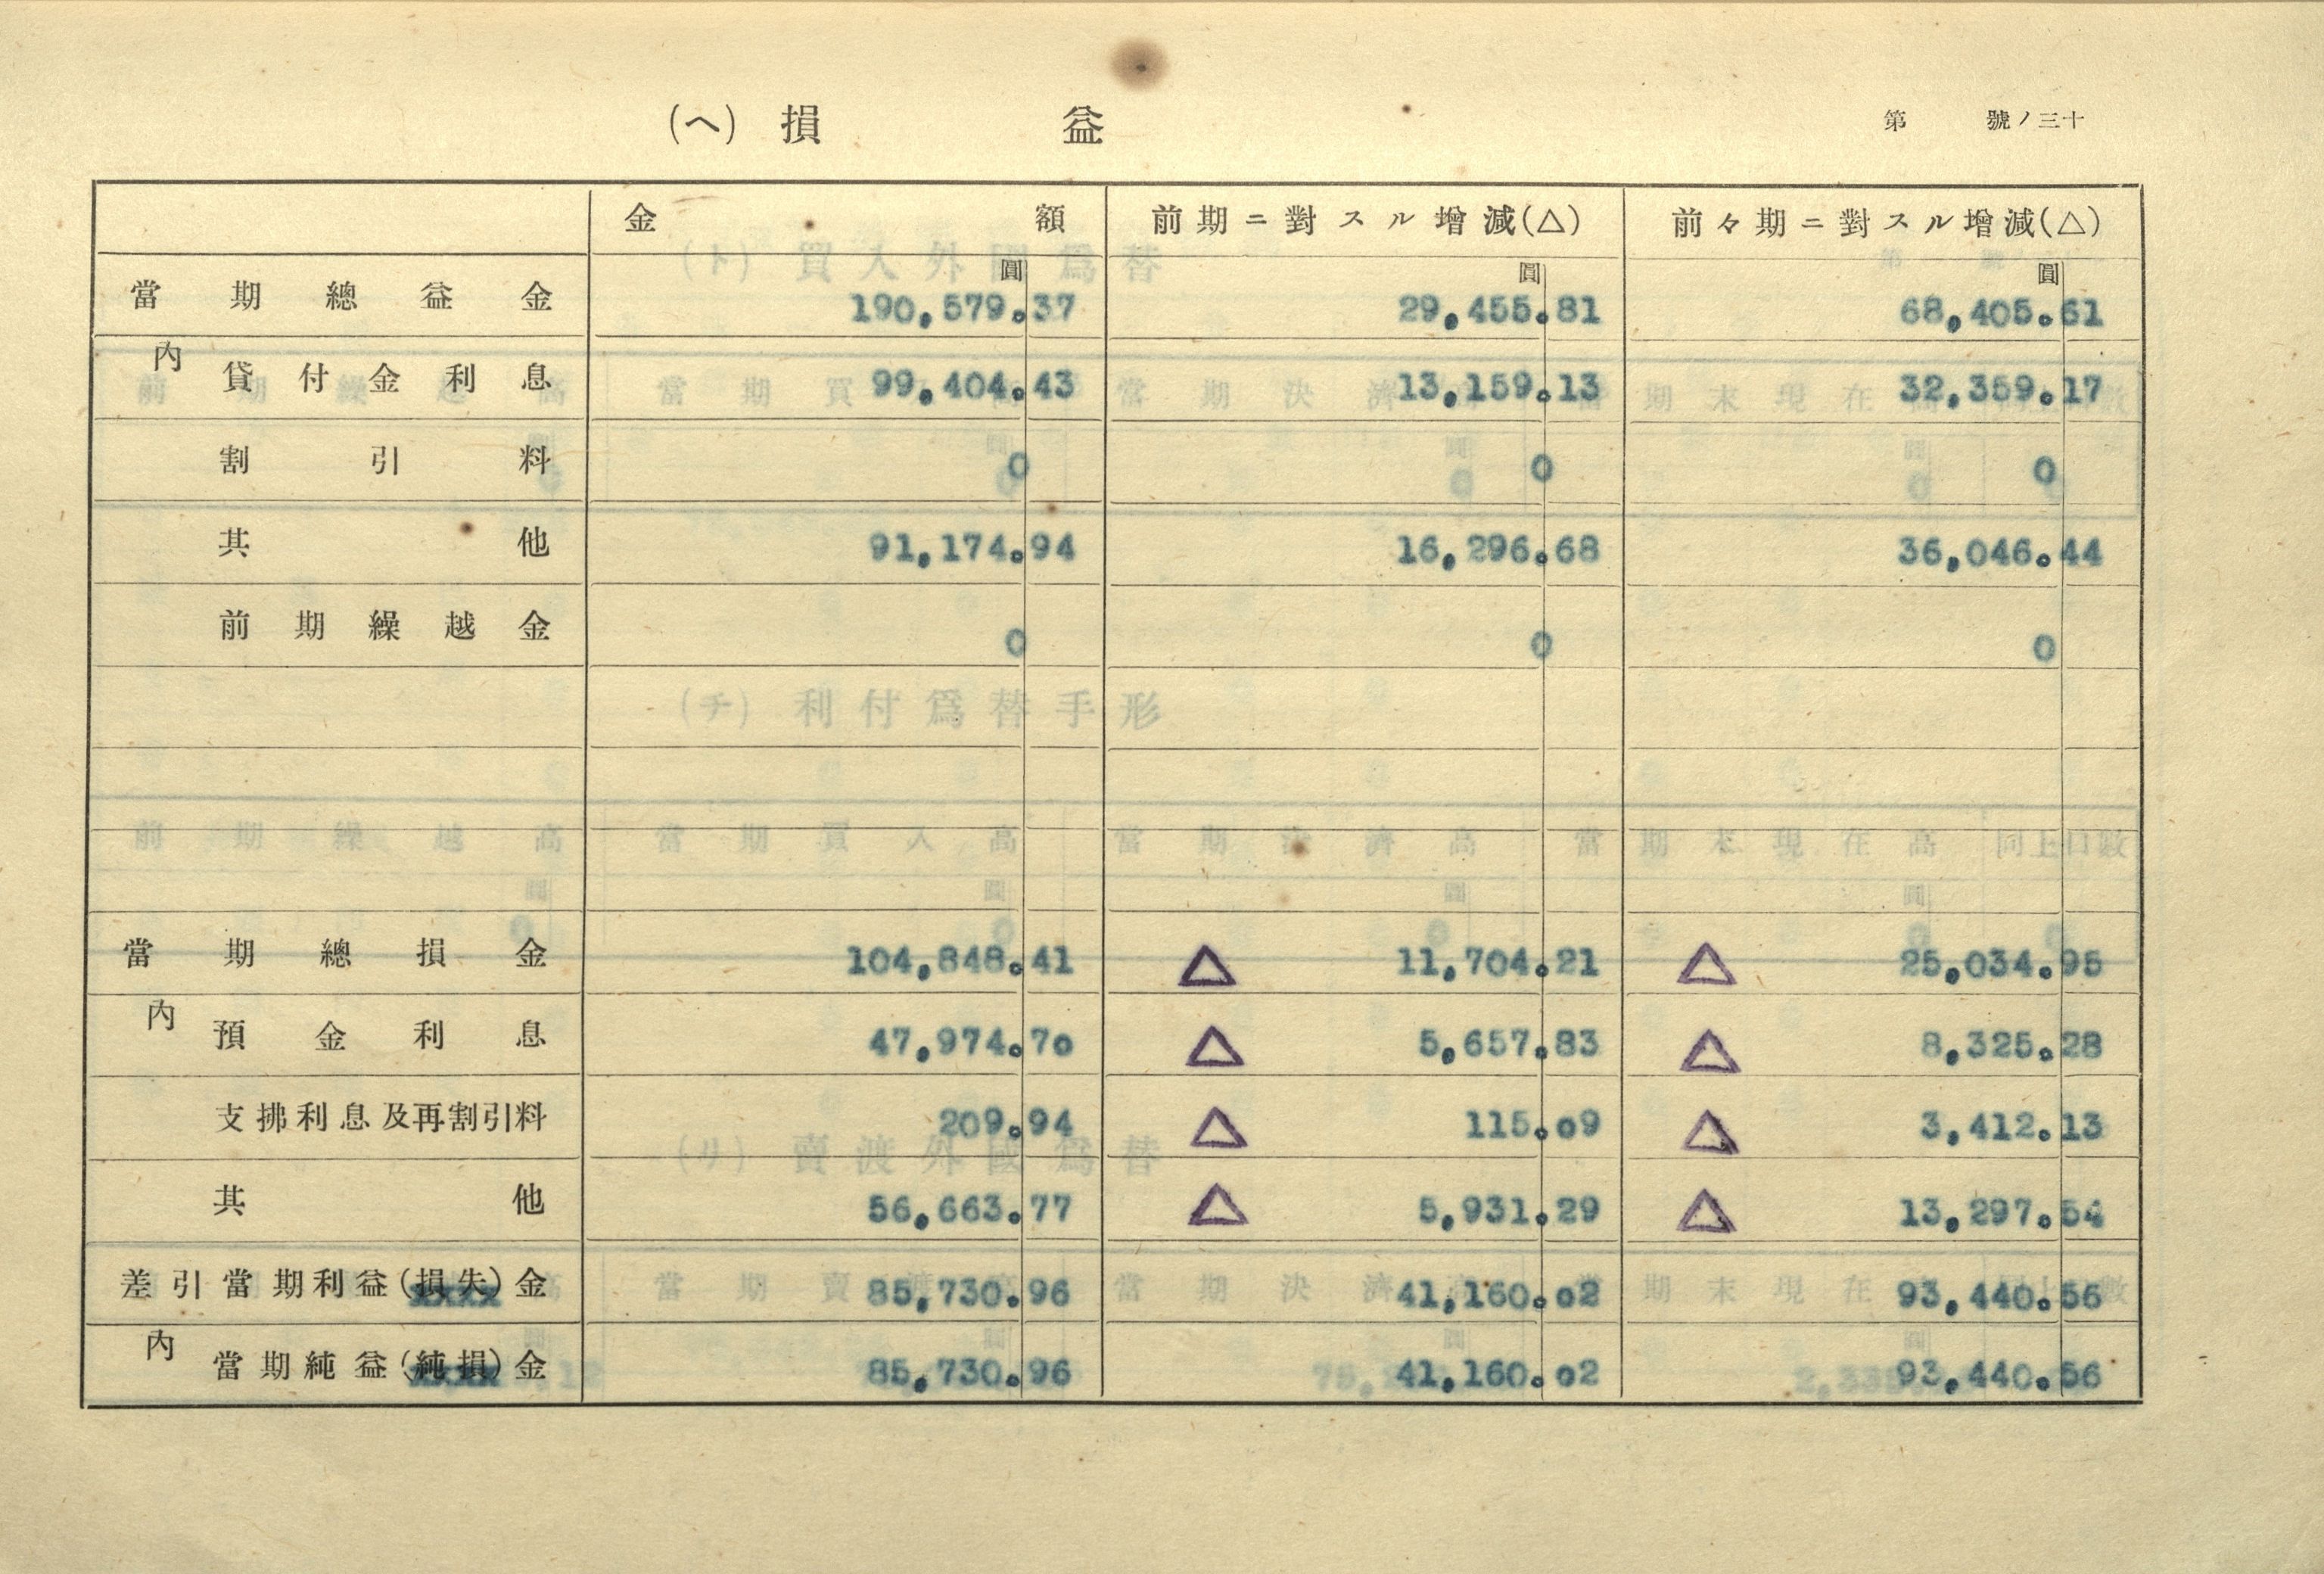 (ヘ) 損 益
第 號ノ三十
金 額 前期ニ對スル增減(△) 前々期ニ對スル增減(△)
圓 圓 圓
當期總益金 190,579.37 29,455.81 68,405.61
內 貸付金利息 99,404.43 13,159.13 32,359.17
割引料 0 0 0
其他 91,174.94 16,296.68 36,046.44
前期繰越金 0 0 0
當期總損金 104,848.41 △ 11,704.21 △ 25,034.95
內 預金利息 47,974.70 △ 5,657.83 △ 8,325.28
支拂利息及再割引料 209.94 △ 115.09 △ 3,412.13
其他 56,663.77 △ 5,931.29 △ 13,297.54
差引當期利益(損失)金 85,730.96 41,160.02 93,440.56
內 當期純益(純損)金 85,730.96 41,160.02 93,440.56